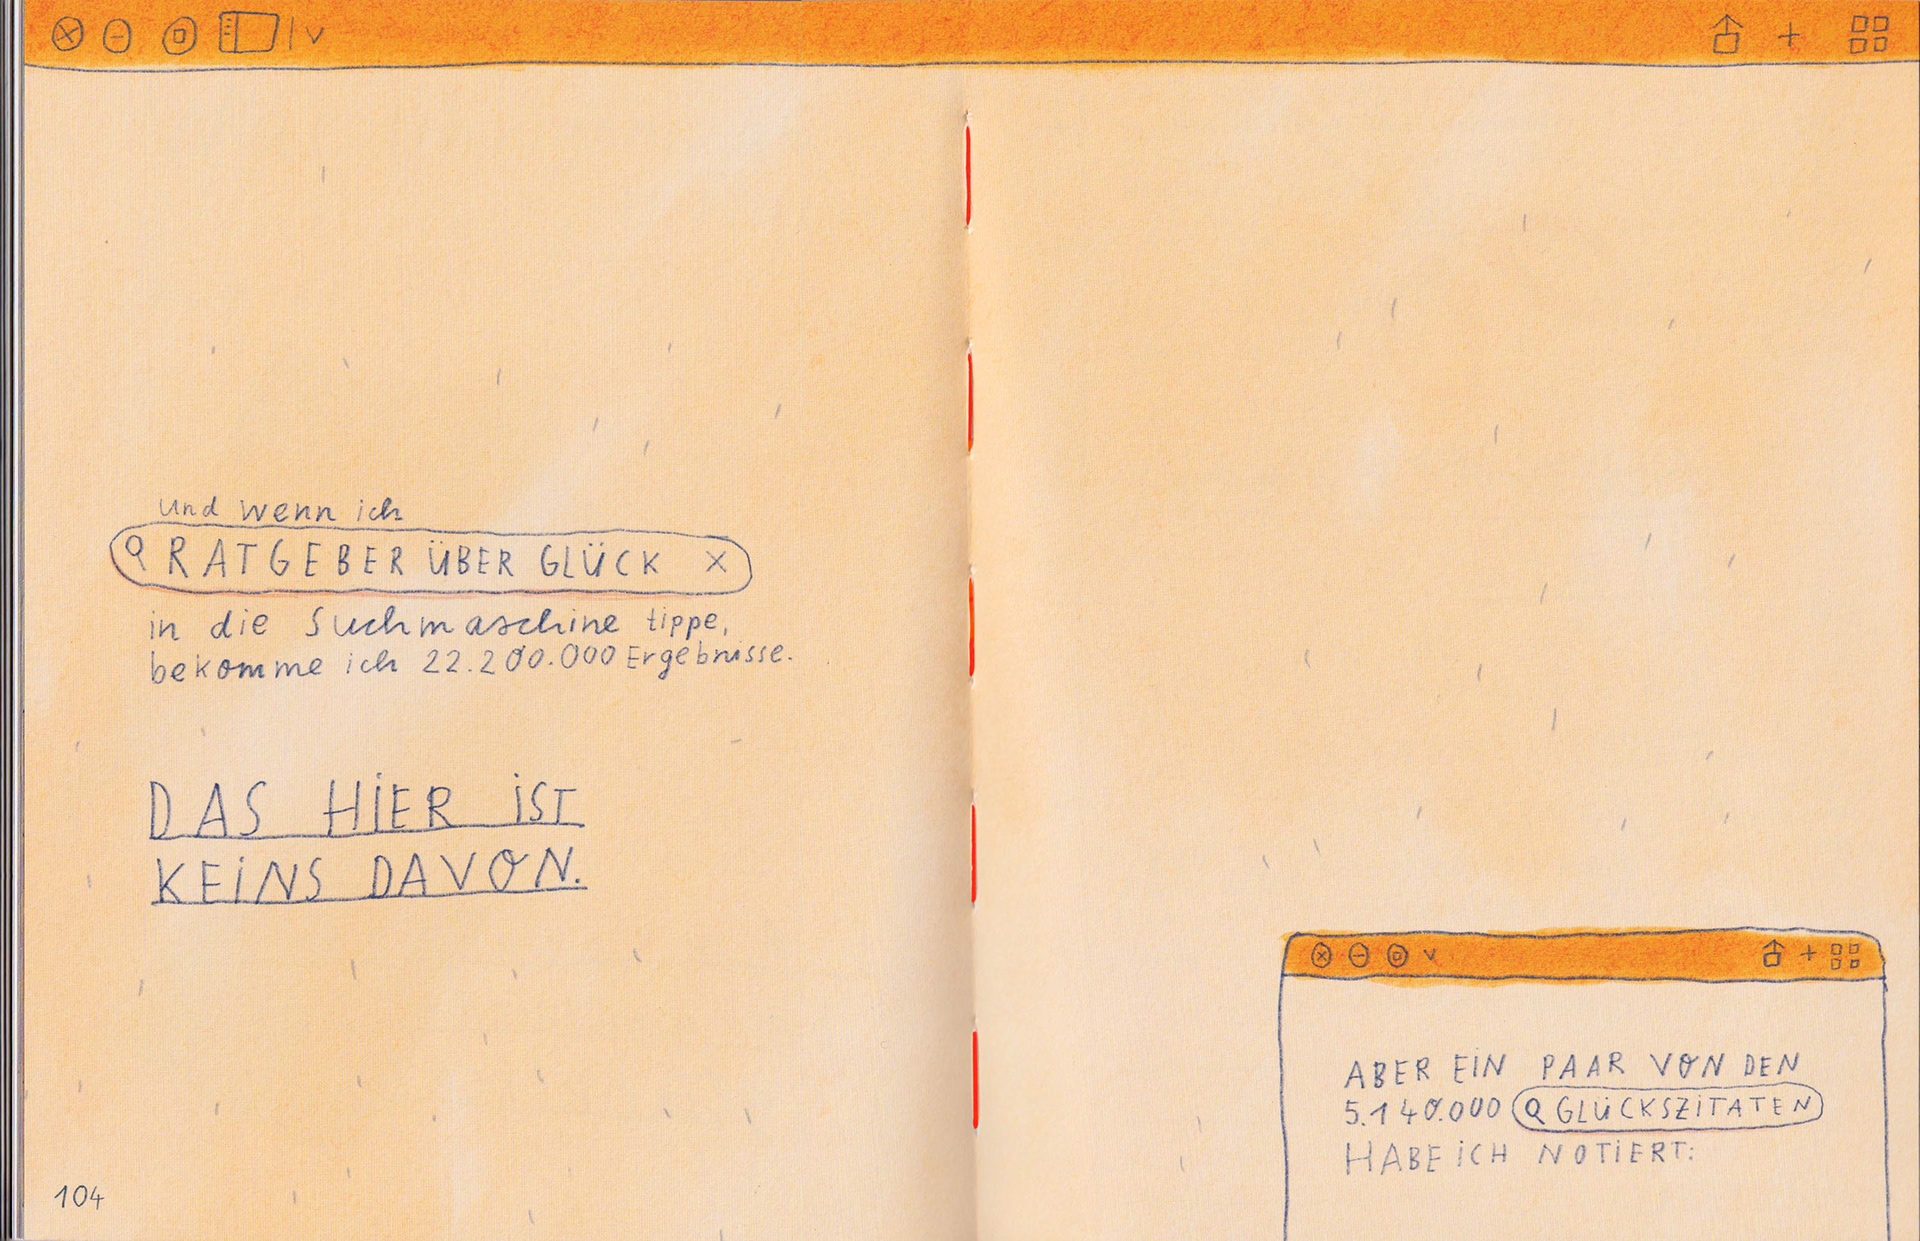 und wenn ich
RATGEBER ÜBER GLÜCK X
in die Suchmaschine tippe,
bekomme ich 22.200.000 Ergebnisse.
DAS HIER IST
KEINS DAVON.
104
ABER EIN PAAR VON DEN
5.140.000 GLÜCKSZITATEN
HABE ICH NOTIERT: